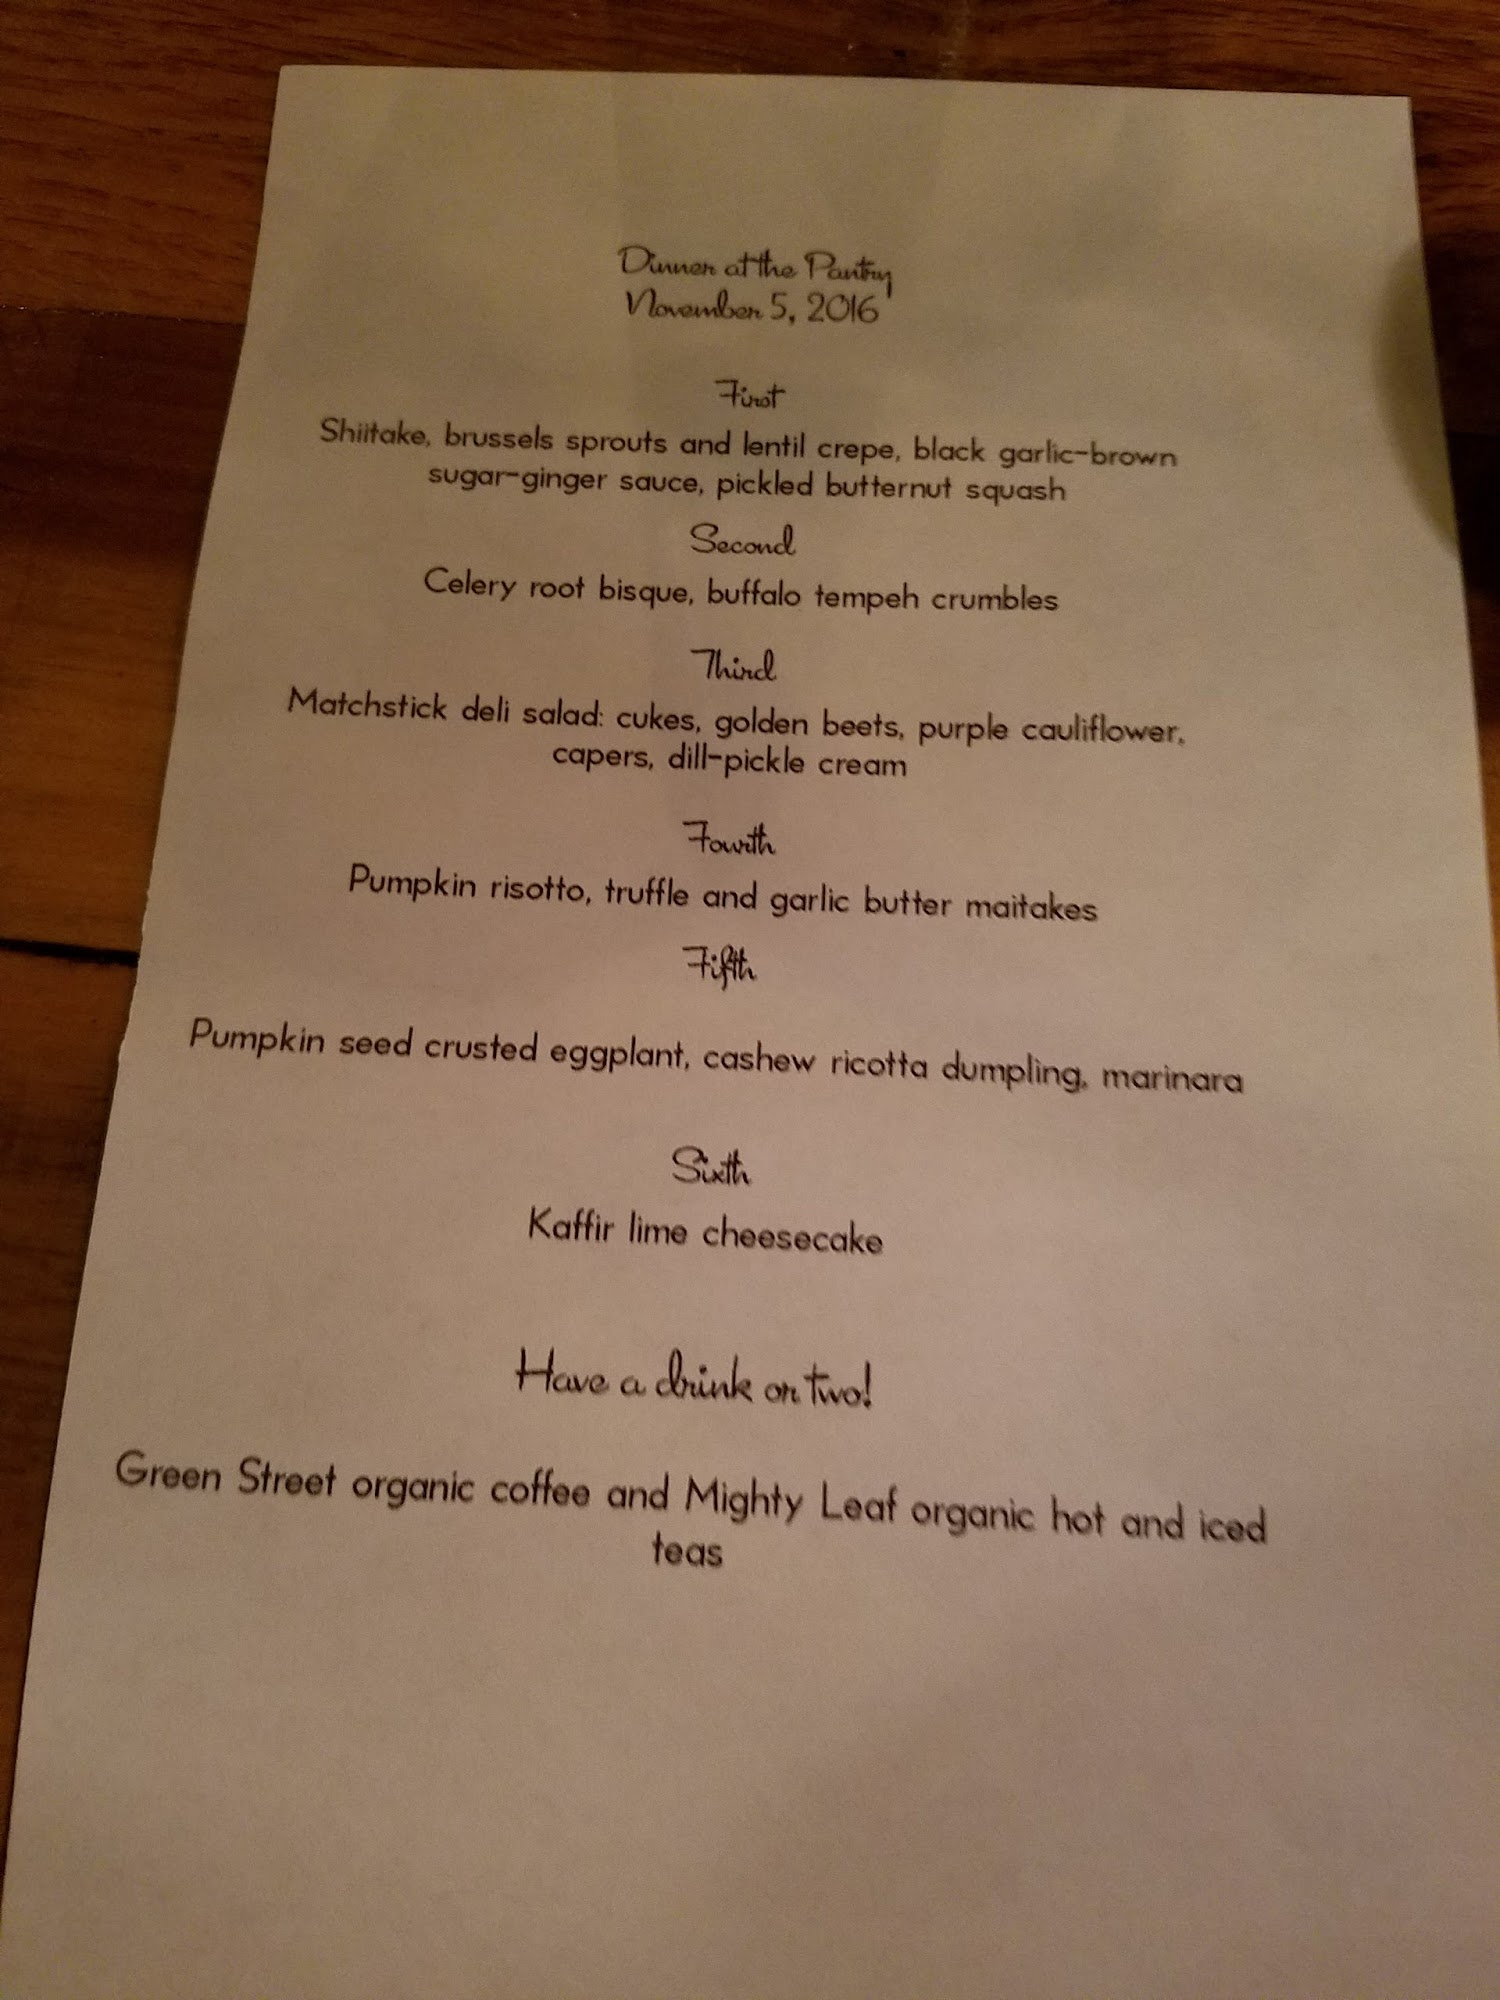 Dinner at the Pantry
November 5, 2016
First
Shiitake, brussels sprouts and lentil crepe, black garlic-brown
sugar-ginger sauce, pickled butternut squash
Second
Celery root bisque, buffalo tempeh crumbles
Third
Matchstick deli salad: cukes, golden beets, purple cauliflower,
capers, dill-pickle cream
Fourth
Pumpkin risotto, truffle and garlic butter maitakes
Fifth
Pumpkin seed crusted eggplant, cashew ricotta dumpling, marinara
Sixth
Kaffir lime cheesecake
Have a drink or two!
Green Street organic coffee and Mighty Leaf organic hot and iced
teas